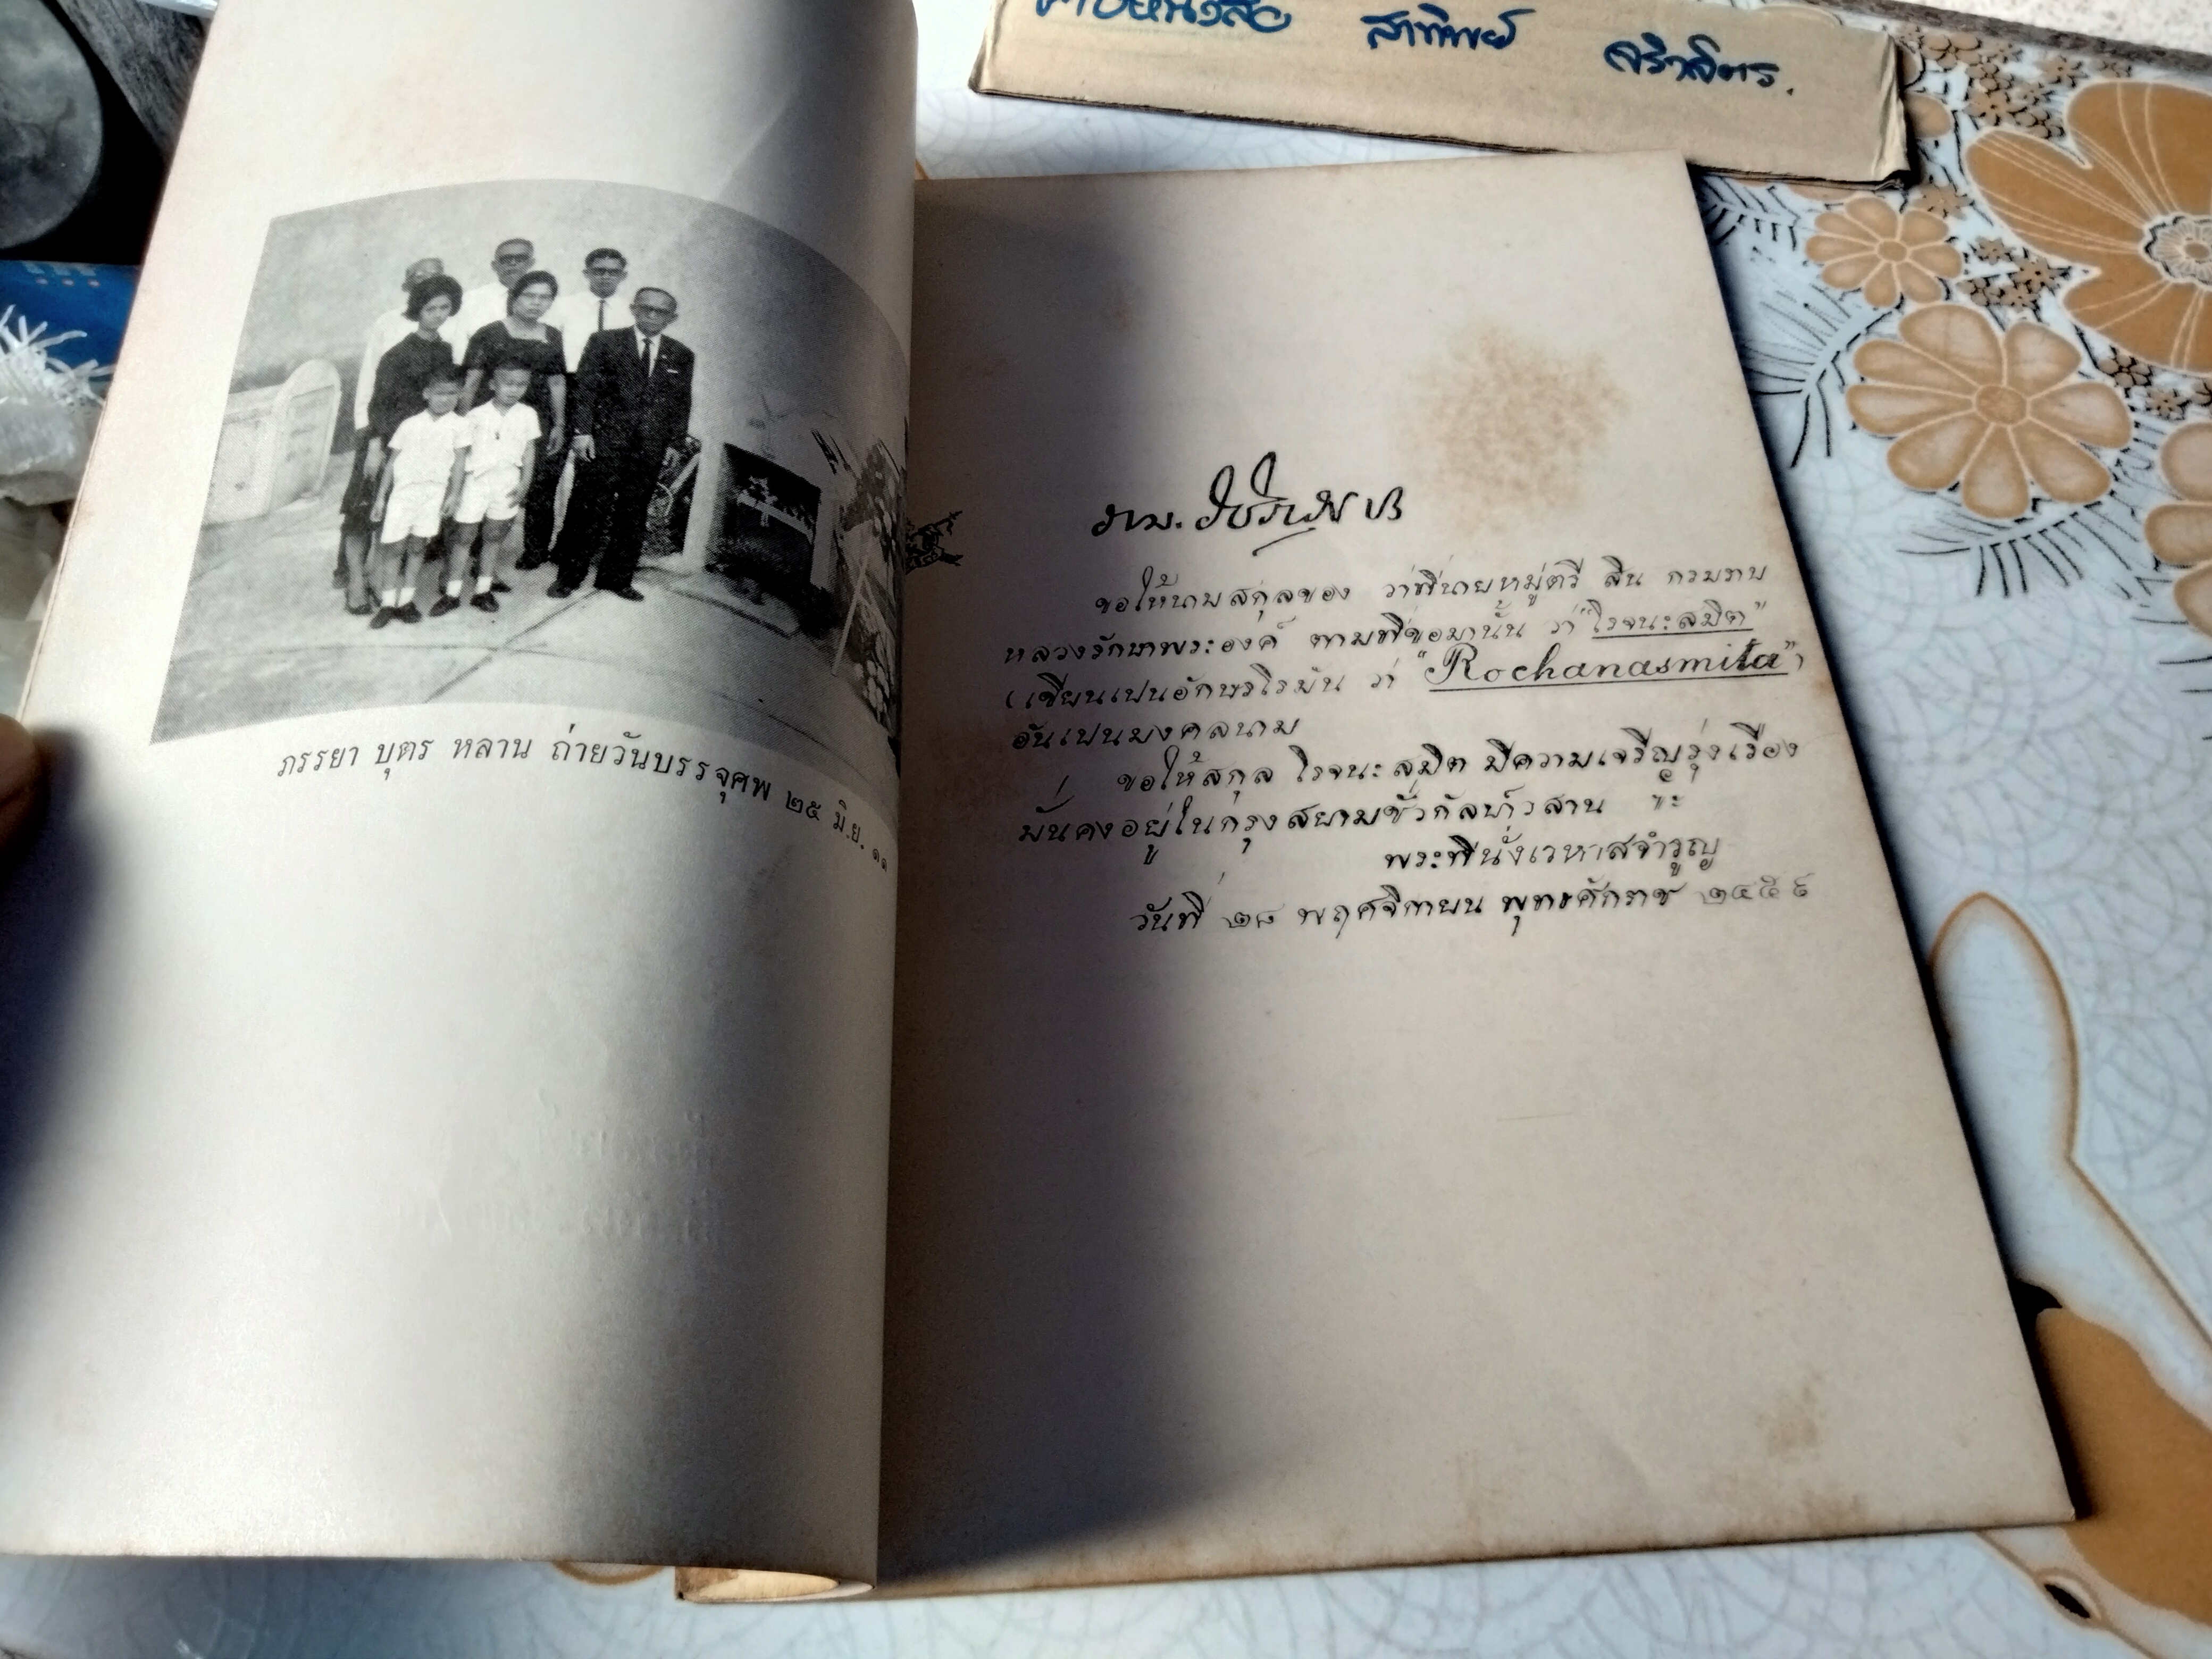 สาทิพย์
ภรรยา บุตร หลาน ถ่ายวันบรรจุศพ ๒๕ มิ.ย. ๑๑
ขอให้นามสกุลของ ว่าที่นายหมู่ตรี สิน กรมราบ
หลวงรักษาพระองค์ ตามที่ขอมานั้น ว่า "โรจนะสมิต"
(เขียนเปนอักษรโรมัน ว่า "Rochanasmita")
อันเปนมงคลนาม
ขอให้สกุล โรจนะสมิต มีความเจริญรุ่งเรือง
มั่นคงอยู่ในกรุงสยามชั่วกัลปาวสาน
พระที่นั่งเวหาสจำรูญ
วันที่ ๒๘ พฤศจิกายน พุทธศักราช ๒๔๕๖